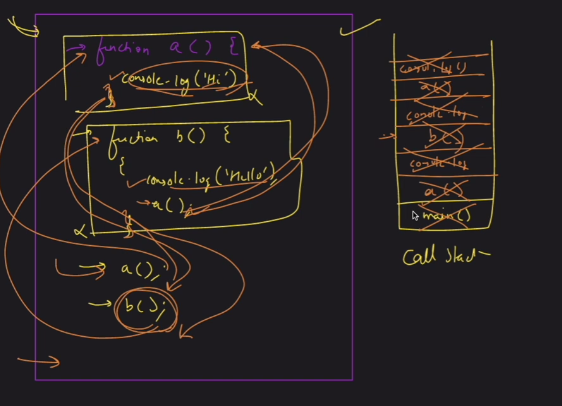 function a() {
console.log('Hi')
}
function b() {
{
console.log('Hello')
a();
}
a();
b();
console.log()
a()
console.log
b()
console.log
a()
main()
Call Stack